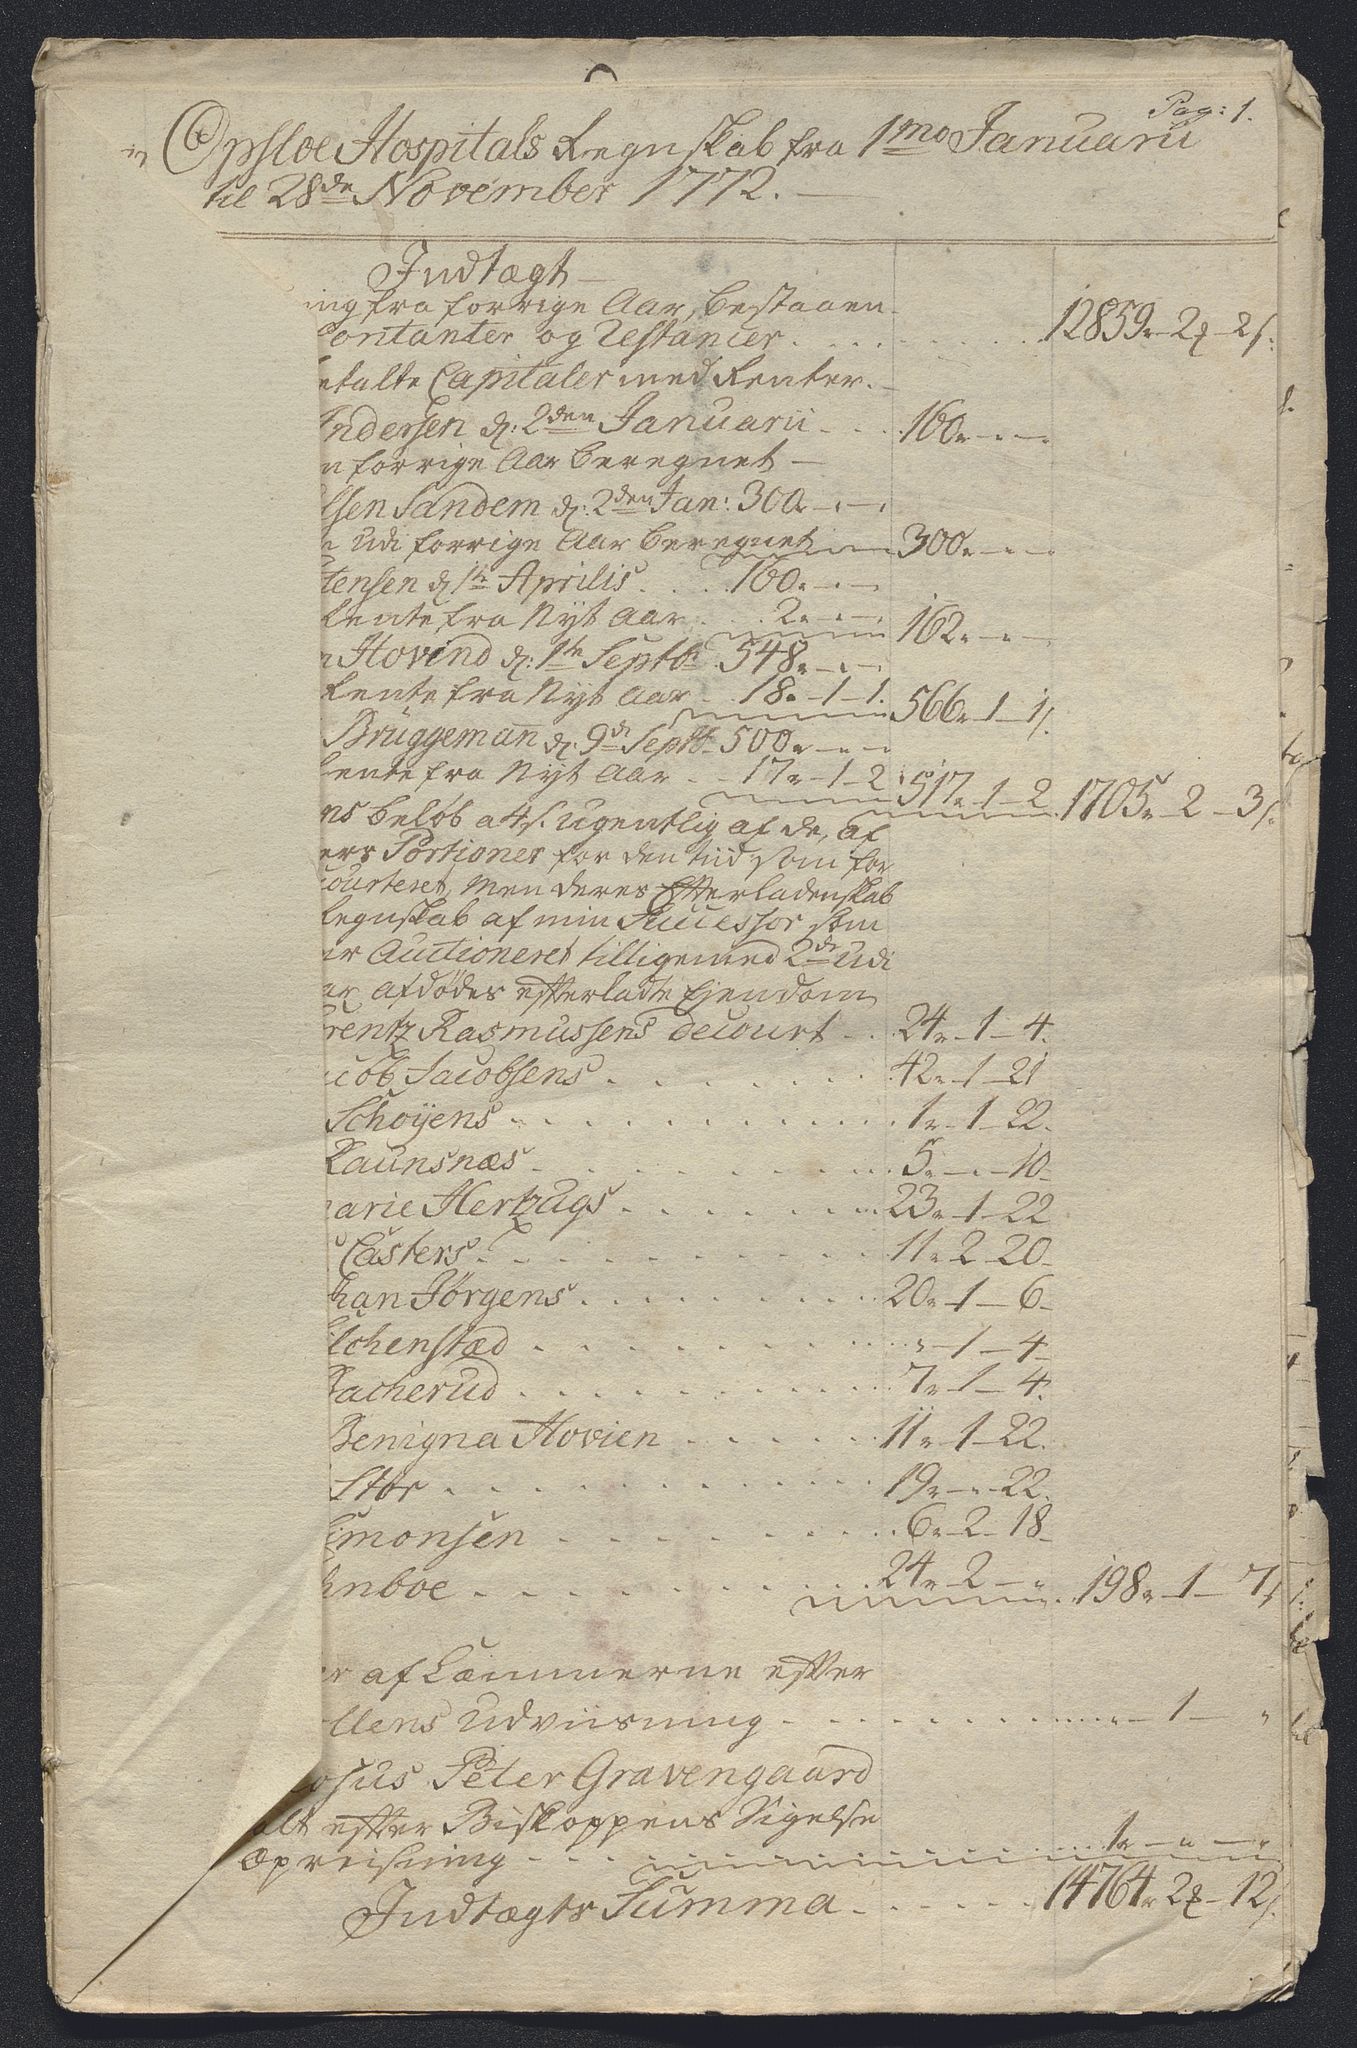 Pag: 1.
Opsloe Hospitals Regnskab fra 1mo Januarii
til 28de November 1772.
Indtægt
ing fra forrige Aar, bestaaen-
Contanter og Restancer 12859 " 2 2
etalte Capitaler med Renter.
Andersen d: 2den Januarii 160 " " "
n forrige Aar beregnet
lsen Sandem d: 2den Jan: 300 " " "
udi forrige Aar beregnet 300 " " "
tensen d 1te Aprilis 160 " " "
Rente fra Nyt Aar 2 " " " 162 " " "
n Hovind d: 1te Septbr 548 " " "
Rente fra Nyt Aar 18 " 1 1. 566 " 1 1
Brüggeman d: 9de Septb 500 " " "
Rente fra Nyt Aar 17 " 1 2 517 " 1 2 1705 " 2 3
ns beløb a 4 s. ugentlig af de, af
ers Portioner for den tiid som for
courteret, men deres Efterladenskab
Regnskab af min Successor som
er Auctioneret tilligemed 2de udi
ar afdødes efterladte Ejendom
rentz Rasmussens decourt 24 " 1 4.
cob Jacobsens 42 " 1 21
Schoÿens 1 " 1 22.
Raunsnæs 5 " " 10
marie Hertzugs 23 " 1 22
Casters 11 " 2 20
han Jörgens 20 " 1 6
lchenstæd " 1 4
Racherud 7 " 1 4.
Benigna Hovien 11 " 1 22.
Stor 19 " " 22.
Simonsen 6 " 2 18
nboe 24 " 2 " 198 " 1 7
er af Lemmerne efter
llens Udviisning " 1 "
Peter Gravengaard
alt efter Biskoppens Sigelse
Opreisning 1 " " "
Indtægts Summa 14764 " 2 12